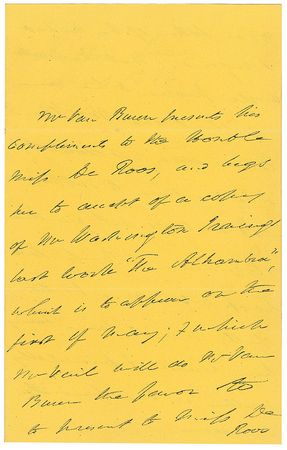 Mr Van Buren presents his
compliments to the Honble
Miss De Roos, and begs
her to accept of a copy
of Mr Washington Irvings
last work "The Alhambra",
which is to appear on the
first of May; & which
Mr Vail will do Mr Van
Buren the favor to
to present to Miss De
Roos